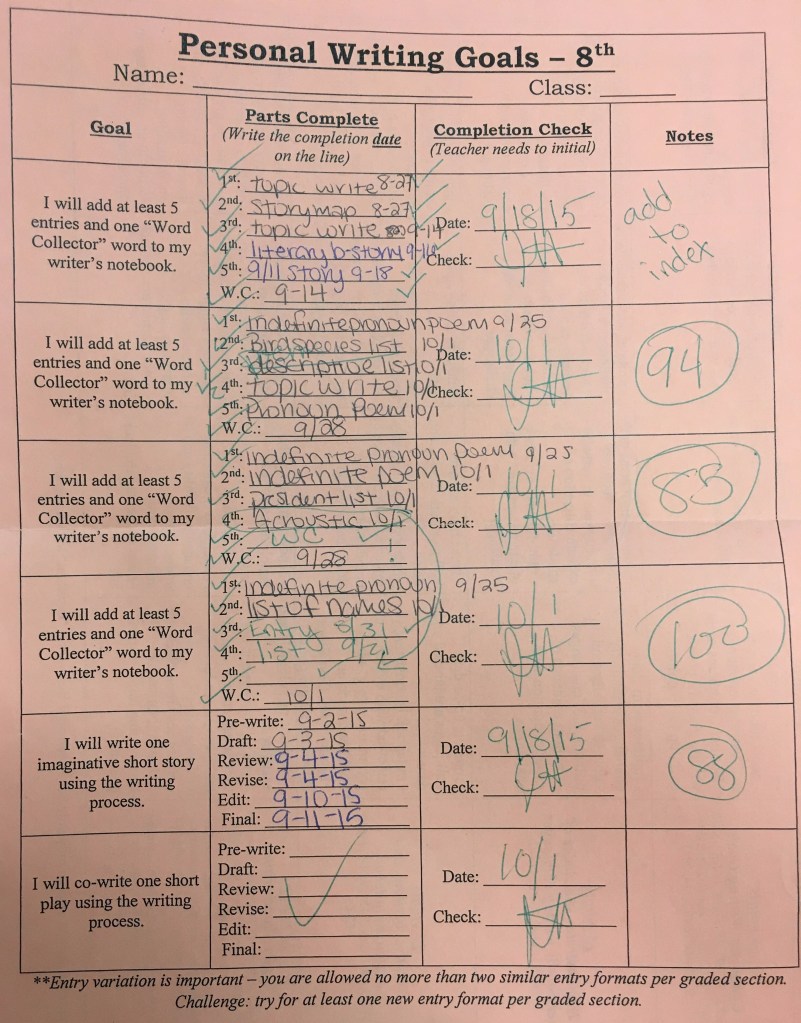 Personal Writing Goals – 8th
Name: Class:
Goal
Parts Complete
(Write the completion date
on the line)
Completion Check
(Teacher needs to initial)
Notes
I will add at least 5
entries and one “Word
Collector” word to my
writer’s notebook.
1st: topic write 8-27
2nd: Storymap 8-27
3rd: topic write 9-14
4th: literary b-story 9-14
5th: 9/11 story 9-18
W.C.: 9-14
Date: 9/18/15
Check:
add
to
index
I will add at least 5
entries and one “Word
Collector” word to my
writer’s notebook.
1st: indefinite pronoun poem 9/25
2nd: Bird species list 10/1
3rd: descriptive list 10/1
4th: topic write 10/1
5th: Pronoun Poem 10/1
W.C.: 9/28
Date: 10/1
Check:
94
I will add at least 5
entries and one “Word
Collector” word to my
writer’s notebook.
1st: indefinite pronoun poem 9/25
2nd: indefinite poem 10/1
3rd: president list 10/1
4th: Acroustic 10/1
5th: WC
W.C.: 9/28
Date: 10/1
Check:
85
I will add at least 5
entries and one “Word
Collector” word to my
writer’s notebook.
1st: indefinite pronoun 9/25
2nd: list of names 10/1
3rd: Entry 8/31
4th: list 9/21
5th:
W.C.: 10/1
Date: 10/1
Check:
100
I will write one
imaginative short story
using the writing
process.
Pre-write: 9-2-15
Draft: 9-3-15
Review: 9-4-15
Revise: 9-4-15
Edit: 9-10-15
Final: 9-11-15
Date: 9/18/15
Check:
88
I will co-write one short
play using the writing
process.
Pre-write:
Draft:
Review:
Revise:
Edit:
Final:
Date: 10/1
Check:
**Entry variation is important – you are allowed no more than two similar entry formats per graded section.
Challenge: try for at least one new entry format per graded section.